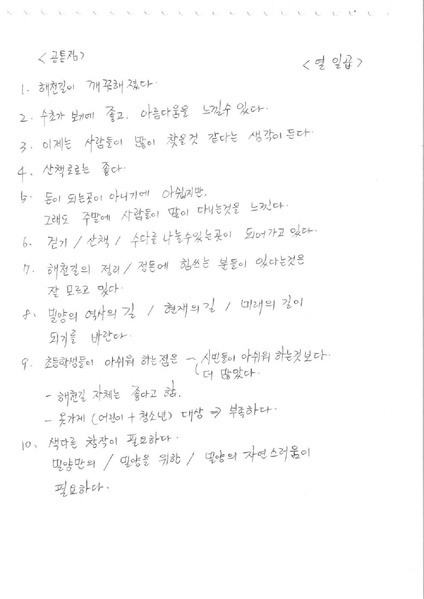 <공통점>
<열 일곱>
1. 해천길이 깨끗해졌다.
2. 수초가 보기에 좋고, 아름다움을 느낄수 있다.
3. 이제는 사람들이 많이 찾을것 같다는 생각이 든다.
4. 산책로로는 좋다.
5. 돈이 되는곳이 아니기에 아쉽지만,
그래도 주말에 사람들이 많이 다니는것을 느낀다.
6. 걷기 / 산책 / 수다를 나눌수있는곳이 되어가고 있다.
7. 해천길의 정리 / 정돈에 힘쓰는 분들이 있다는것은
잘 모르고 있다.
8. 밀양의 역사의 길 / 현재의 길 / 미래의 길이
되기를 바란다.
9. 초등학생들이 아쉬워 하는점은 - 시민들이 아쉬워 하는것보다.
더 많았다.
- 해천길 자체는 좋다고 함.
- 옷가게 (어린이 + 청소년) 대상 ⇒ 부족하다.
10. 색다른 창작이 필요하다.
밀양만의 / 밀양을 위한 / 밀양의 자연스러움이
필요하다.